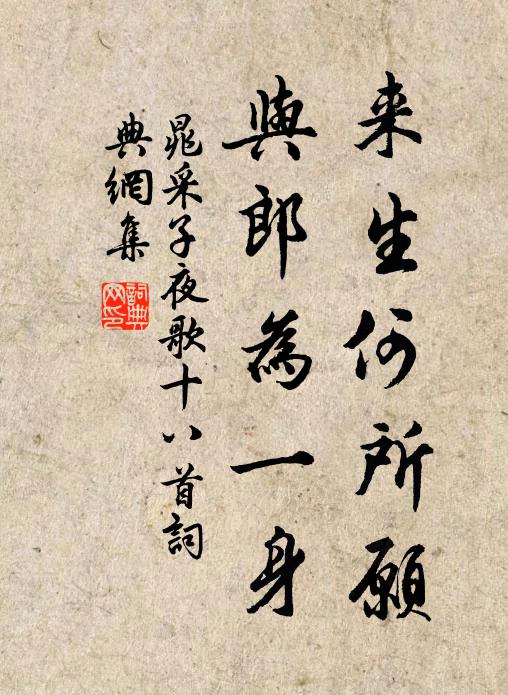 来生何所願
與郎為一身
晁采子夜歌十八首詞
典網集
詞典網印